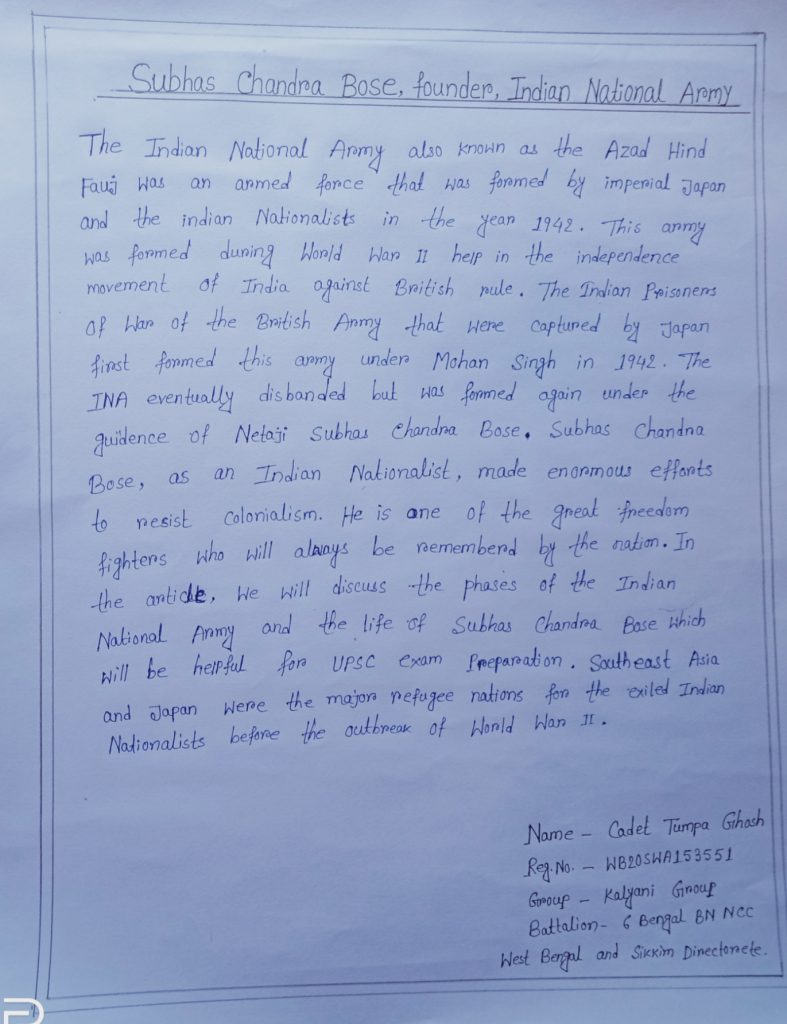 Subhas Chandra Bose, founder, Indian National Army
The Indian National Army also known as the Azad Hind
Fauj was an armed force that was formed by imperial Japan
and the indian Nationalists in the year 1942. This army
was formed during World War II help in the independence
movement of India against British rule. The Indian Prisoners
of War of the British Army that were captured by Japan
first formed this army under Mohan Singh in 1942. The
INA eventually disbanded but was formed again under the
guidence of Netaji Subhas Chandra Bose. Subhas Chandra
Bose, as an Indian Nationalist, made enormous efforts
to resist colonialism. He is one of the great freedom
fighters who will always be rememberd by the nation. In
the article, we will discuss the phases of the Indian
National Army and the life of Subhas Chandra Bose which
will be helpful for UPSC exam Preparation. Southeast Asia
and Japan were the major refugee nations for the exiled Indian
Nationalists before the outbreak of World War II.
Name - Cadet Tumpa Ghosh
Reg.No. - WB20SWA153551
Group - Kalyani Group
Battalion - 6 Bengal BN NCC
West Bengal and Sikkim Directorete.